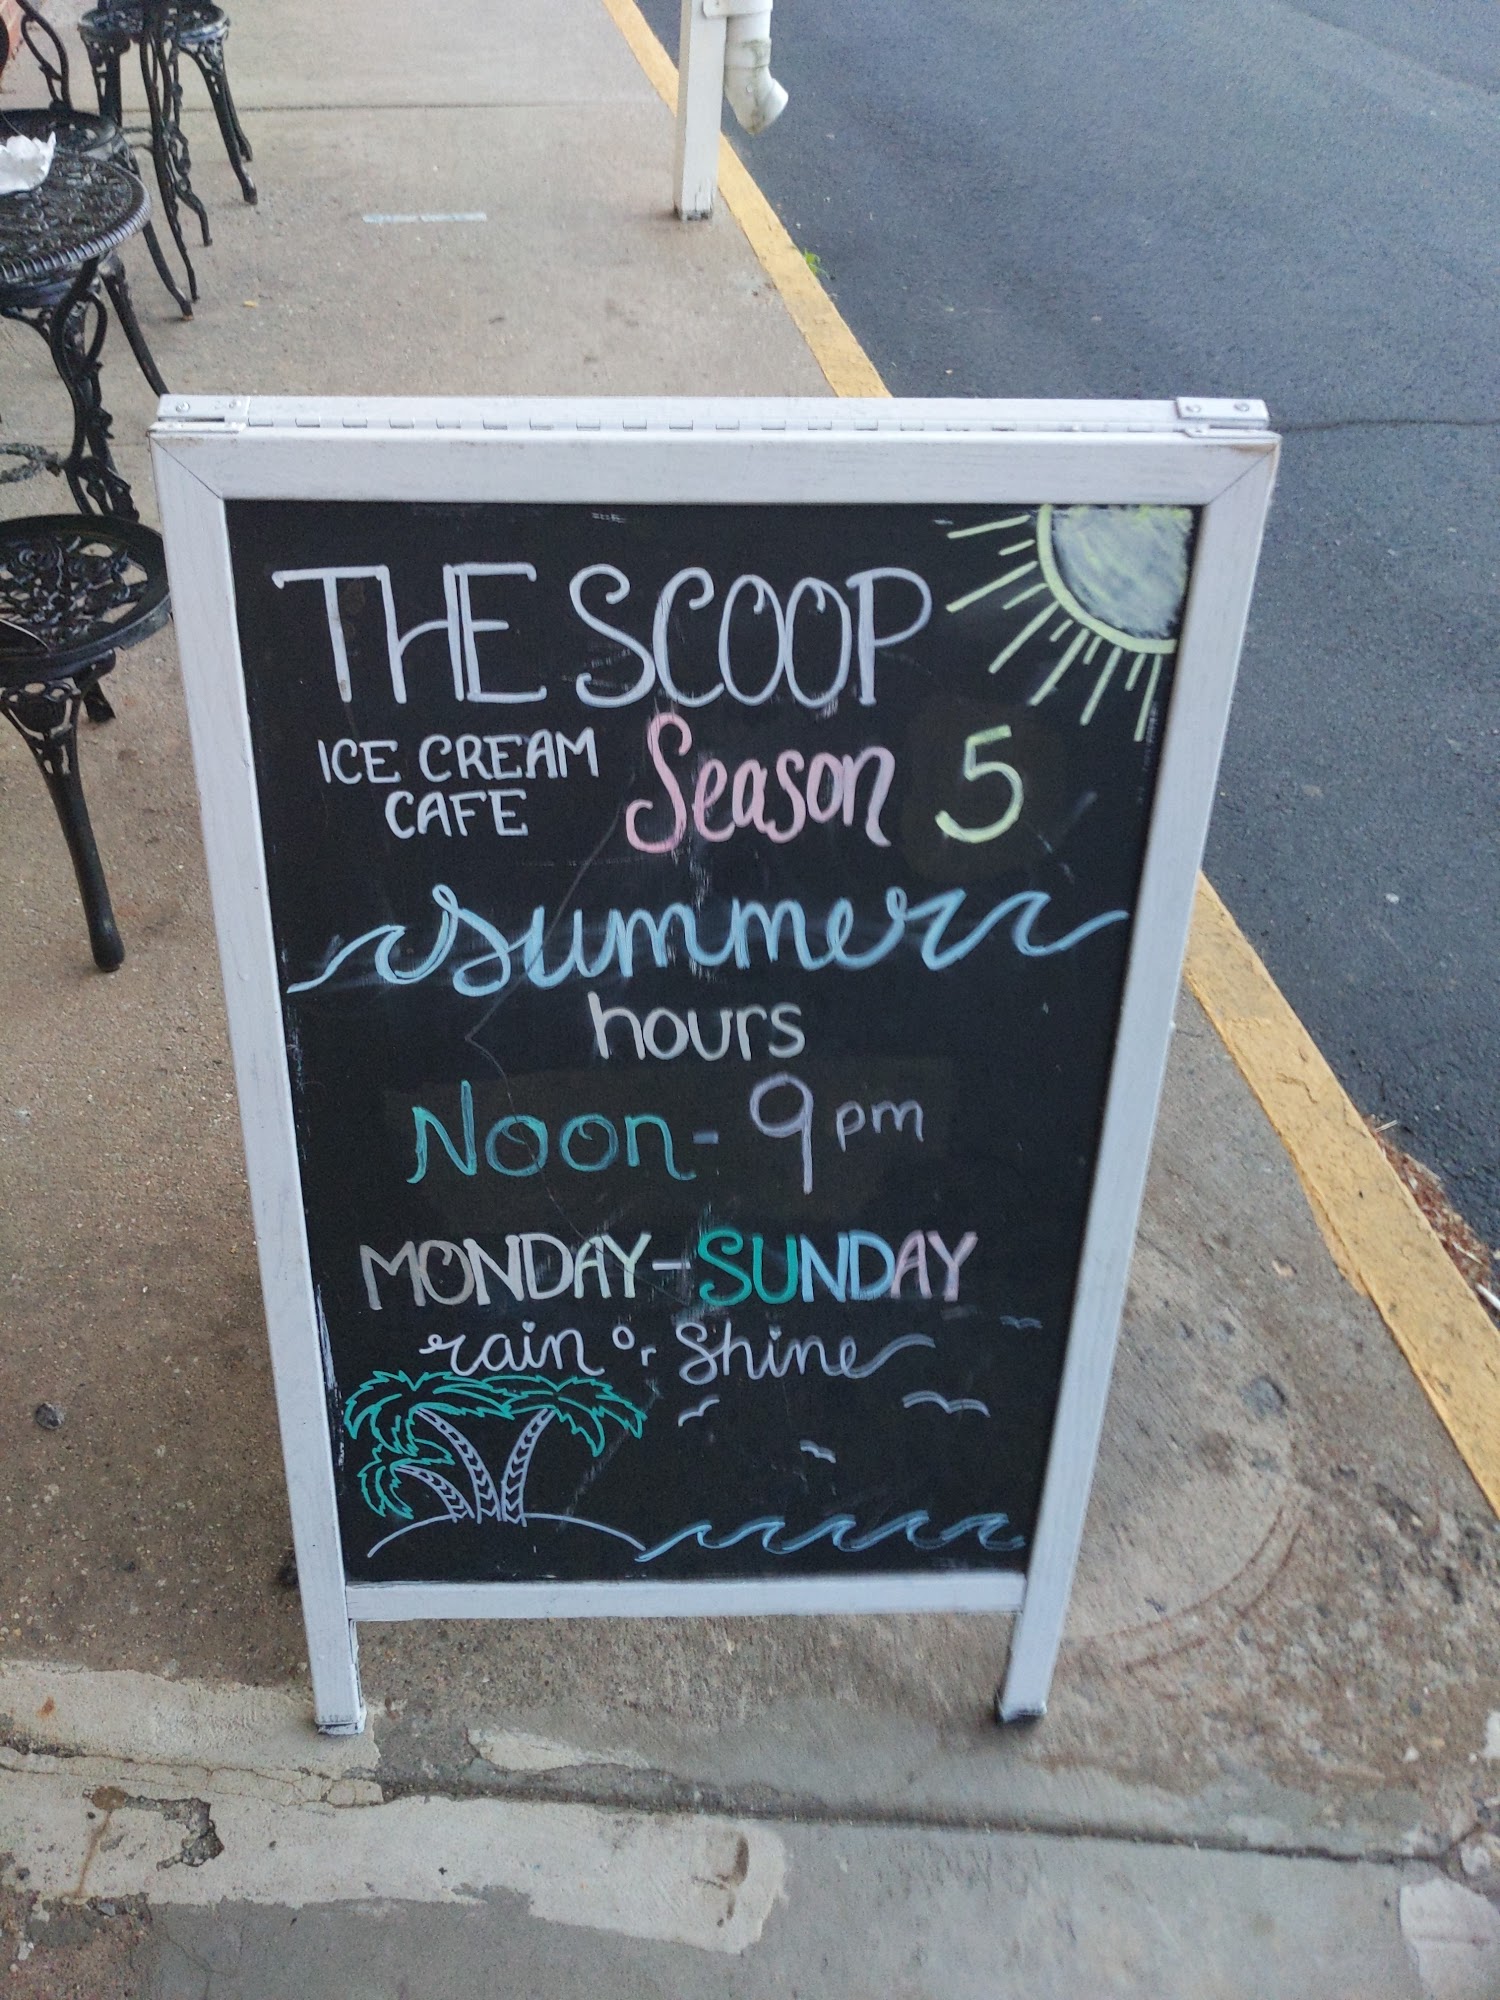 THE SCOOP
ICE CREAM
CAFE
Season 5
summer
hours
Noon - 9pm
MONDAY - SUNDAY
rain or shine